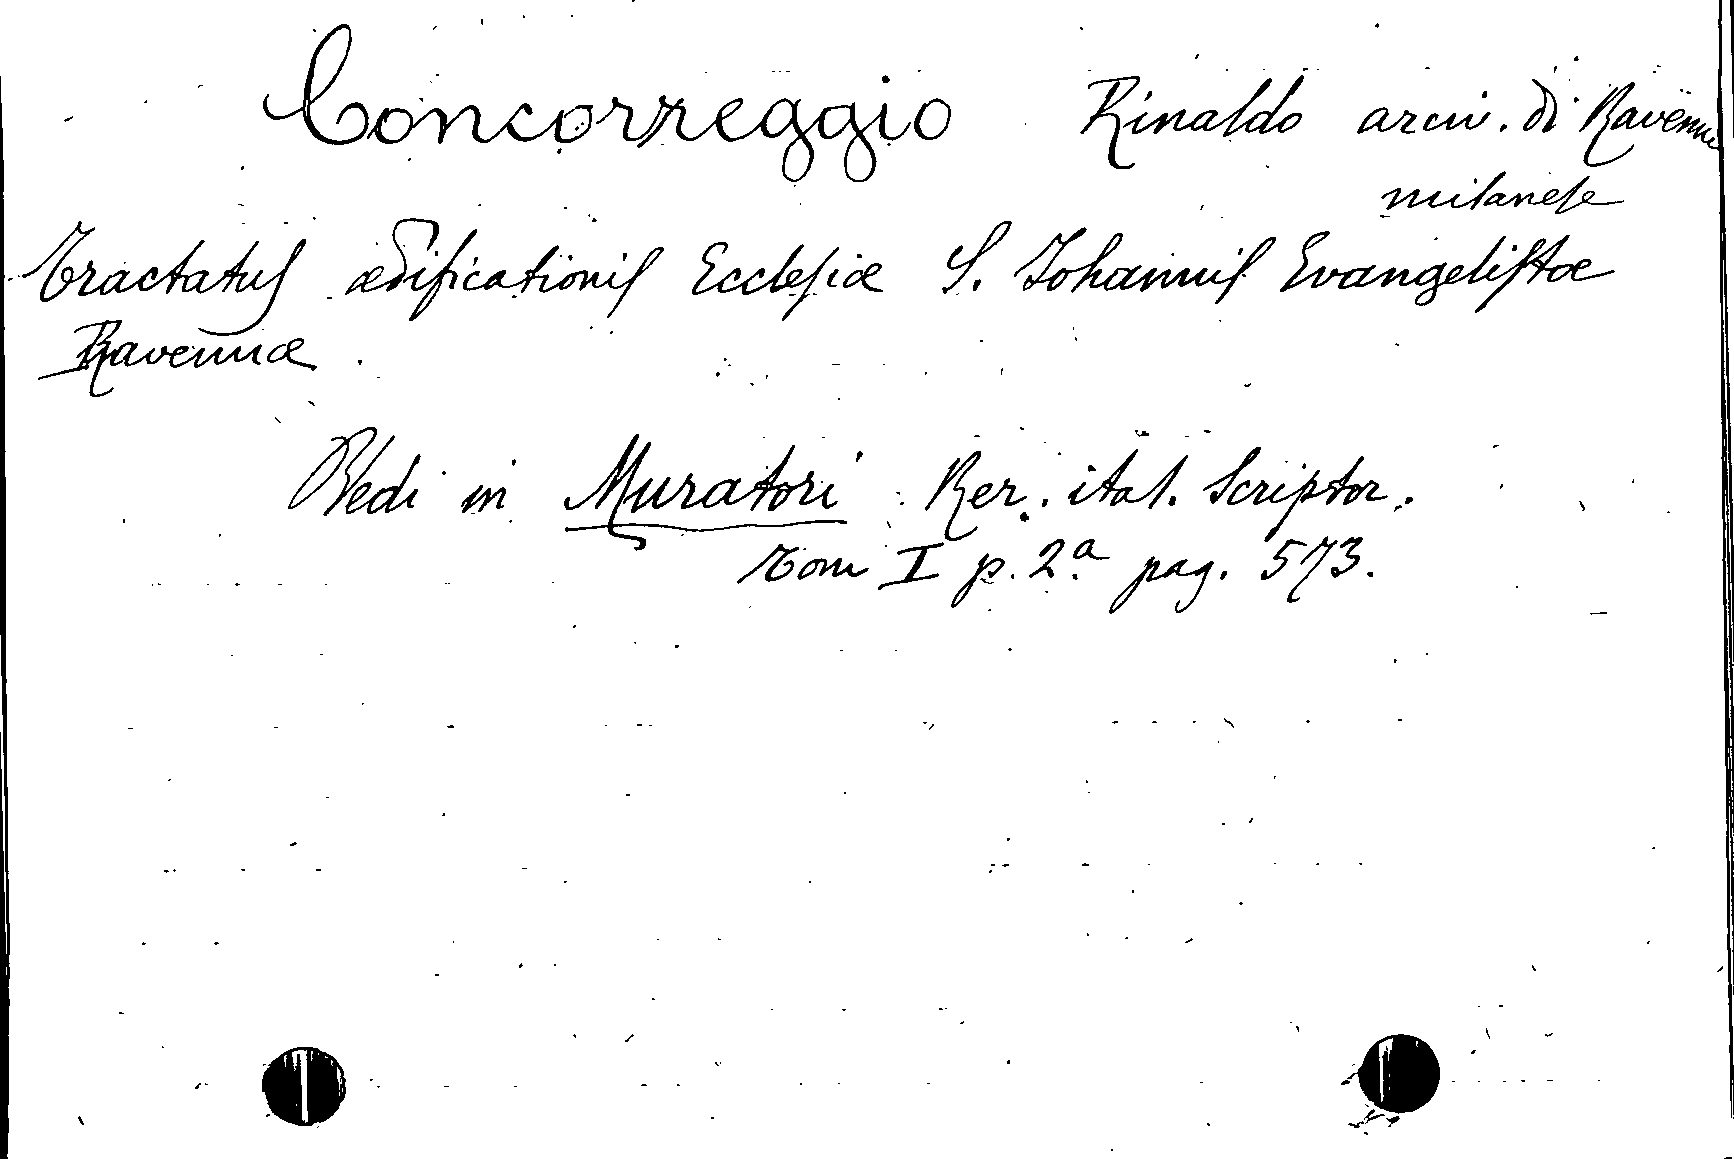 Concorreggio Rinaldo arciv. di Ravenna
milanese
Tractatus ædificationis Ecclesiæ S. Johannis Evangelistæ
Ravennæ.
Vedi in Muratori Rer. ital. Scriptor.
Tom I p. 2.a pag. 573.